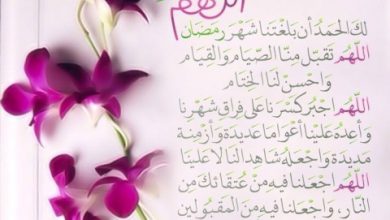 اللهم
لك الحمد أن بلغتنا شهر رمضان
اللهم تقبل منا الصيام والقيام
واحسن لنا الختام
اللهم اجبر كسرنا على فراق شهرنا
وأعده علينا أعواما عديدة وأزمنة
مديدة واجعله شاهدا لنا لا علينا
اللهم اجعلنا فيه من عتقائك من
النار، واجعلنا فيه من المقبولين